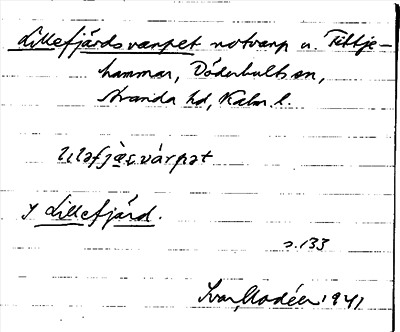 Lillefjärdsvarpet notvarp u. Tillje-
hammar, Döderhults sn,
Stranda hd, Kalm. l.
lıləfjæ̀ṣvárpət
I Lillefjärd.
s. 133
Ivar Modéer 1941